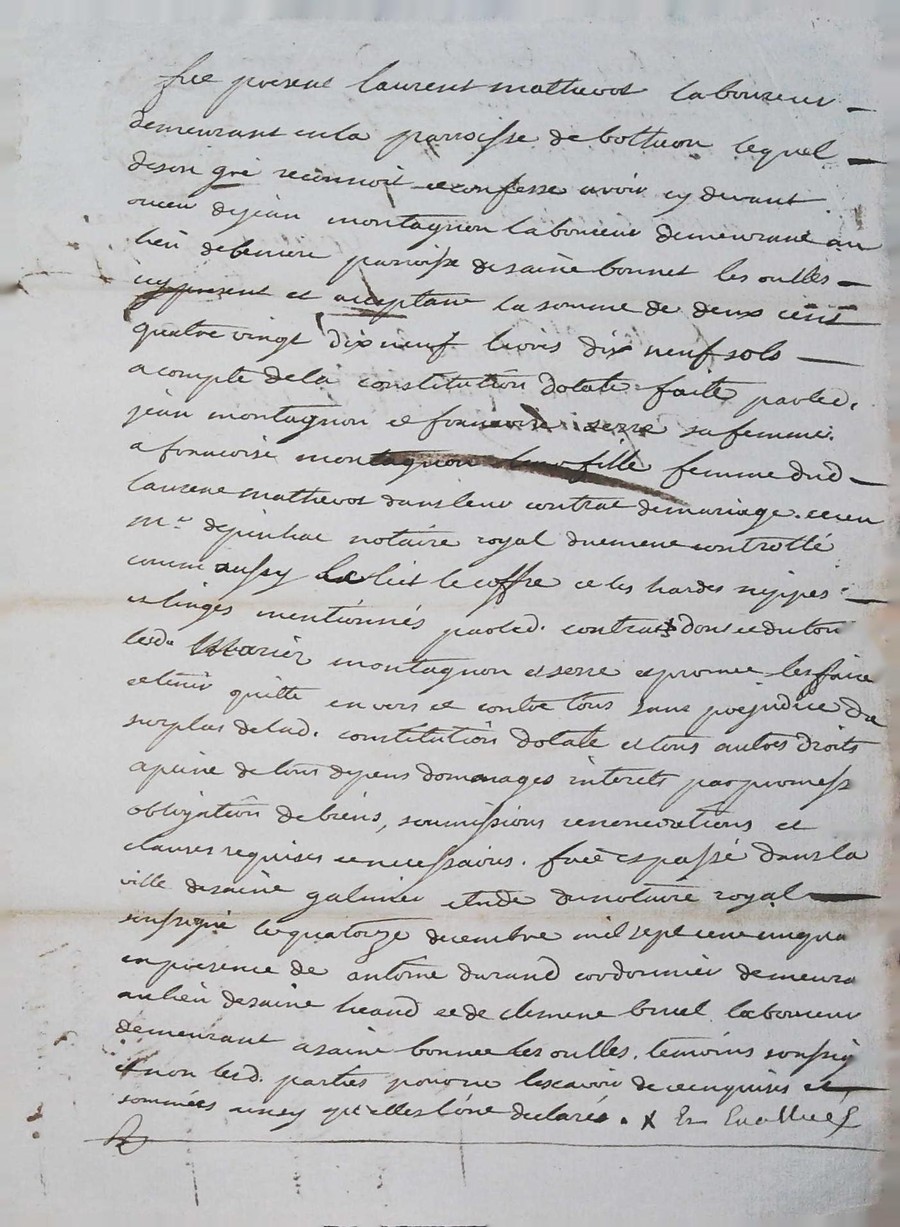 fut present laurent mathevot laboureur
demeurant en la parroisse de bothéon lequel
de son gré reconnoit et confesse avoir cy devant
receu de jean montagnon laboureur demeurant au
lieu de parroisse de saint bonnet les oulles
icy present et acceptant la somme de deux cent
quatre vingt dix neuf livres dix neuf sols
a compte de la constitution dotale faite par led.
jean montagnon et francoise serre sa femme
a francoise montagnon leur fille femme dud
laurent mathevot dans leur contrat de mariage receu
Me notaire royal duement controllé
comme aussy le lict le coffre et les hardes nippes
et linges mentionnés par led. contrat dont et du tout
led. montagnon et serre et promet les faire
et tenir quitte envers et contre tous sans prejudice du
surplus de lad. constitution dotale et tous autres droits
a peine de tous depens dommages interets par promess
obligation de biens, soumissions renonciations et
clauses requises et necessaires. fait et passé dans la
ville de saint galmier etude du notaire royal
soussigné le quatorze decembre mil sept cent cinqua
en presence de antoine durand cordonnier demeura
au lieu de saint heand et de clement bruel laboureur
demeurant a saint bonnet les oulles. temoins soussig
et non lesd. parties pour ne scavoir de ce enquises et
sommées ainsy qu'elles l'ont declaré. x